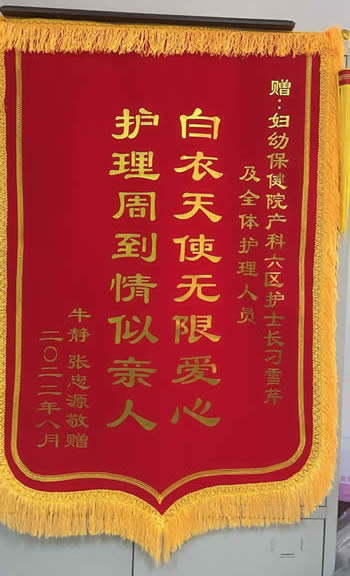 赠：妇幼保健院产科六区护士长刁雪芹
及全体护理人员
白衣天使无限爱心
护理周到情似亲人
牛静 张忠源敬赠
二〇二二年八月